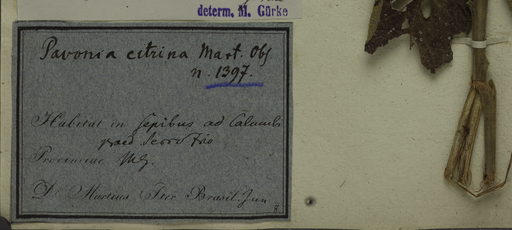 determ. M. Gürke
Pavonia citrina Mart. Obs
n. 1397.
Habitat in sepibus ad Calumbi
praed
Provinciae MG.
D. Martius Iter Brasil. Jun